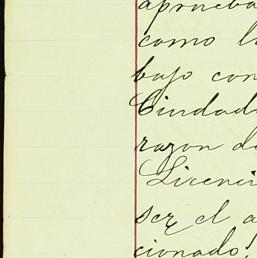 aprueba
como l
bajo con
Ciudad
razon d
Licenci
ser el a
cionado!